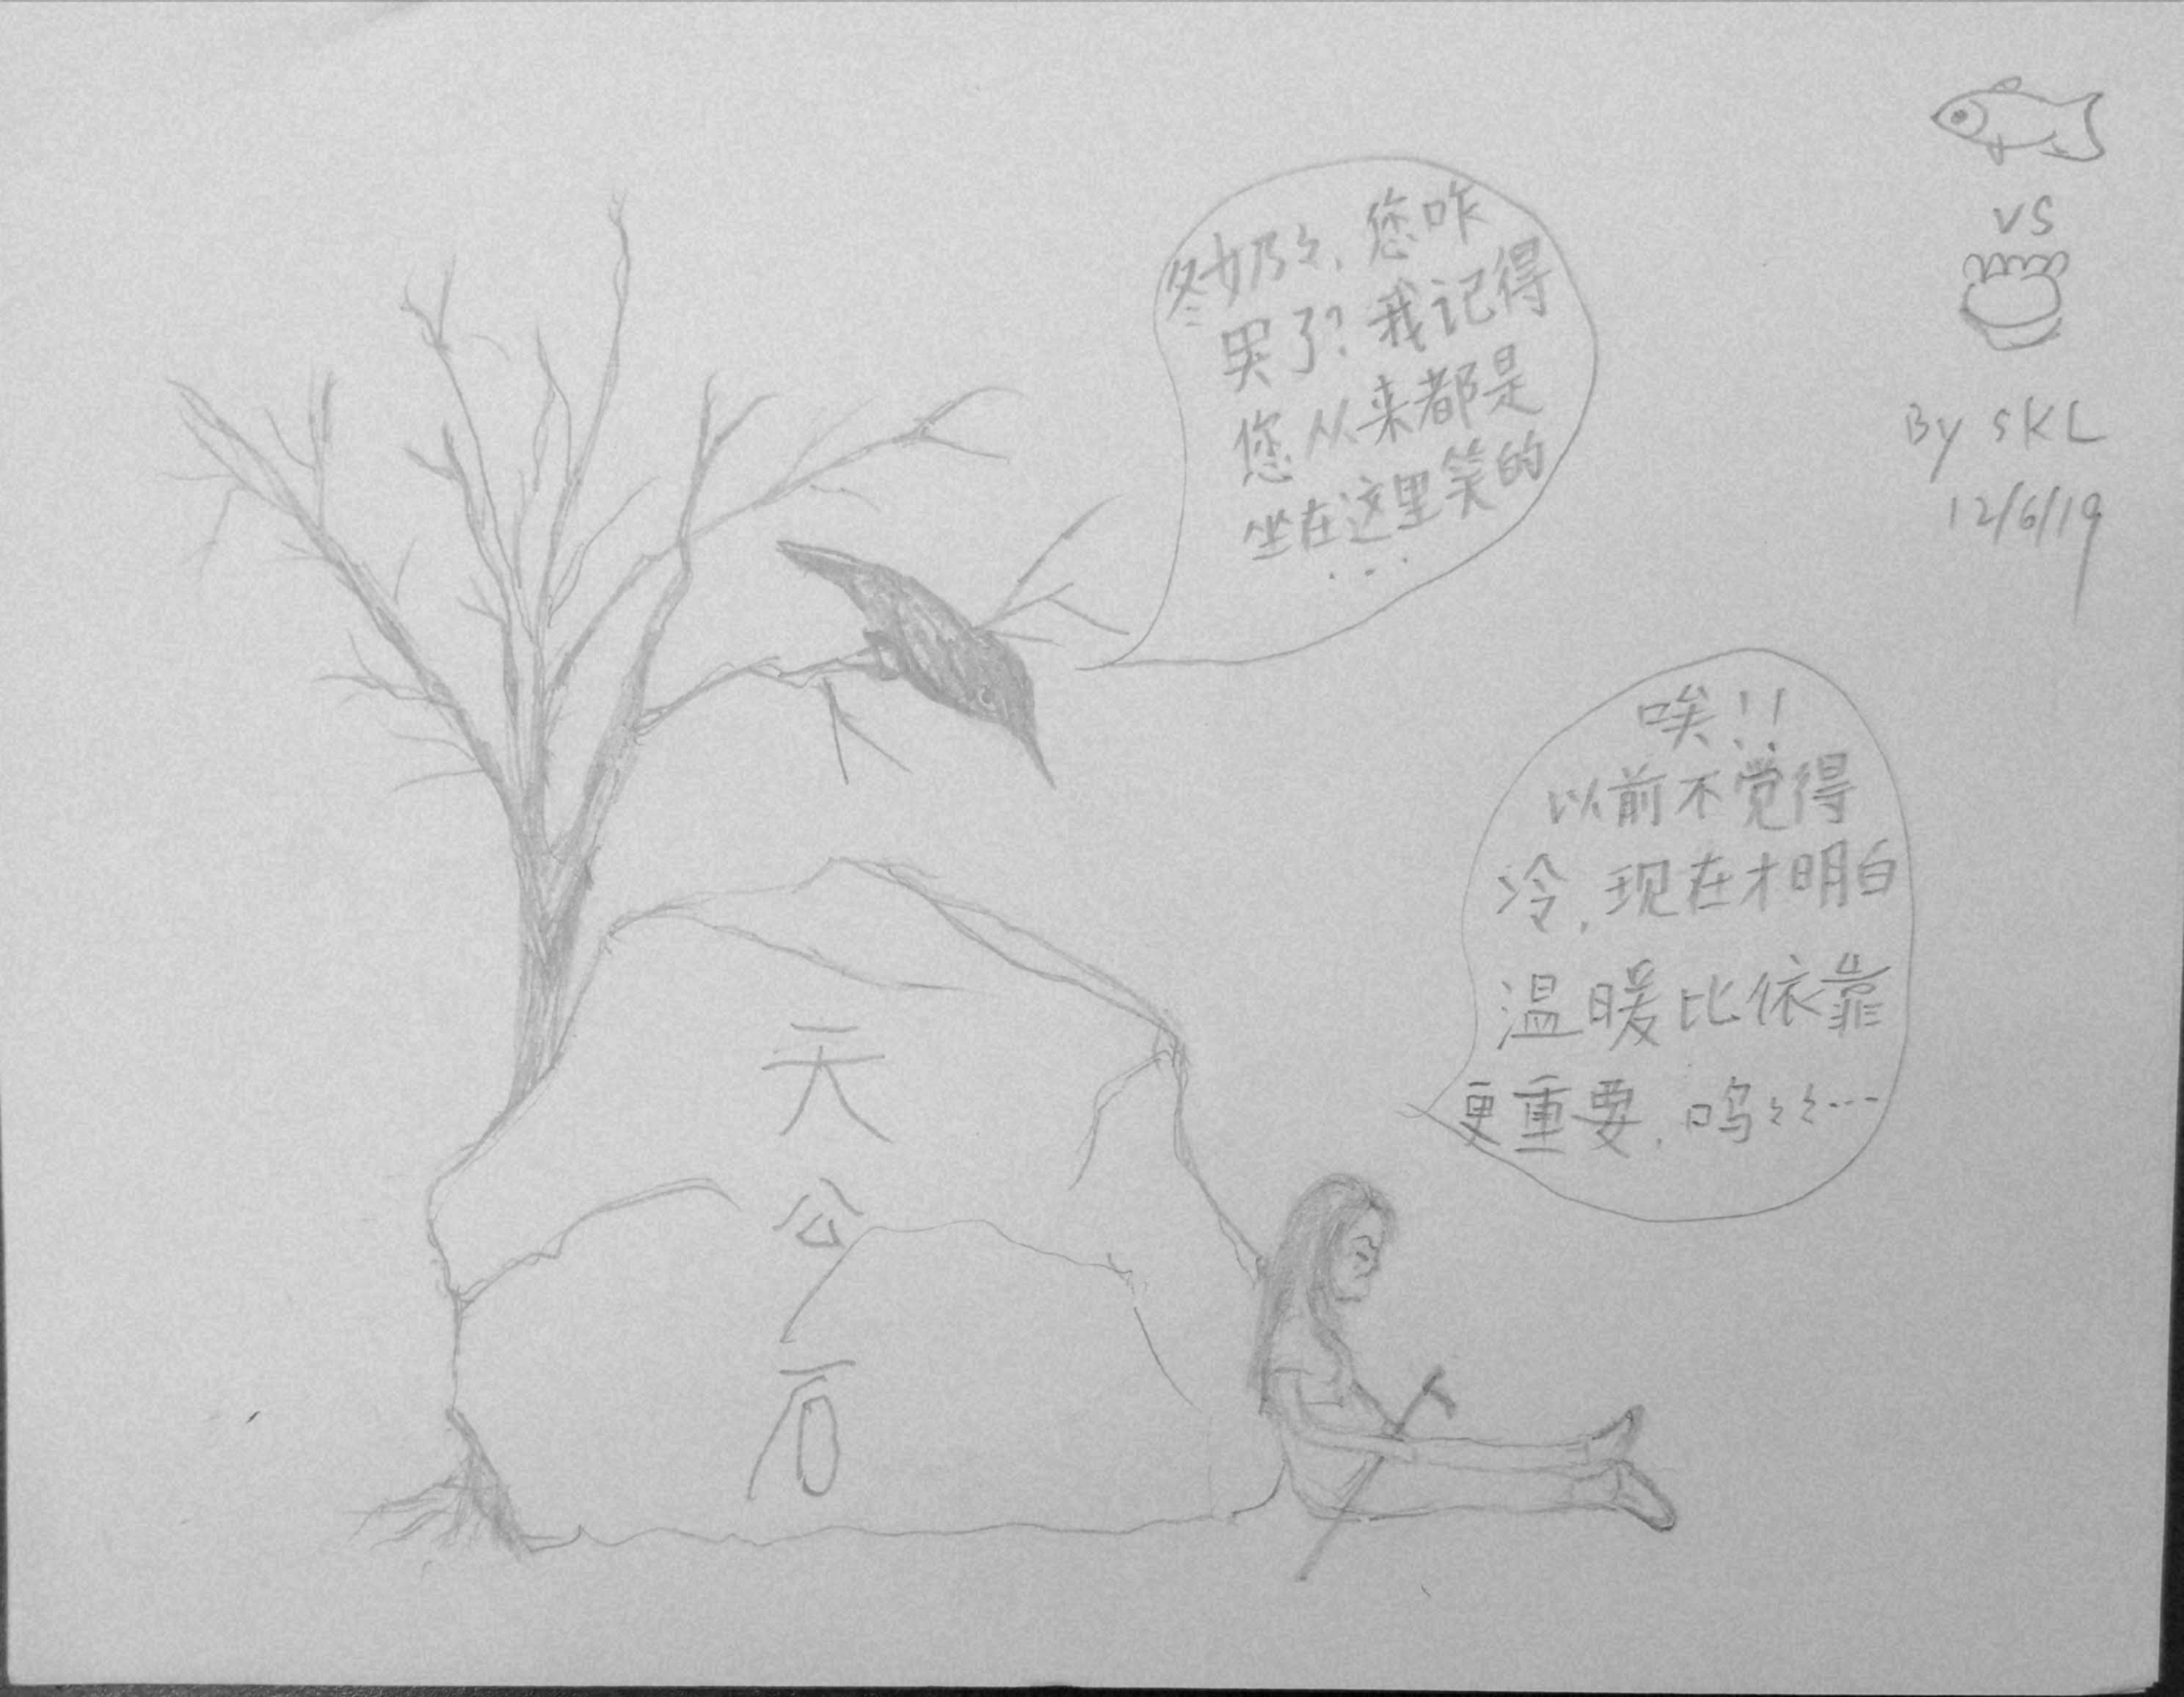 冬奶々，您咋
哭了？我记得
您从来都是
坐在这里笑的
...
唉！！
以前不觉得
冷，现在才明白
温暖比依靠
更重要，呜々々...
天
公
石
VS
By SKL
12/6/19